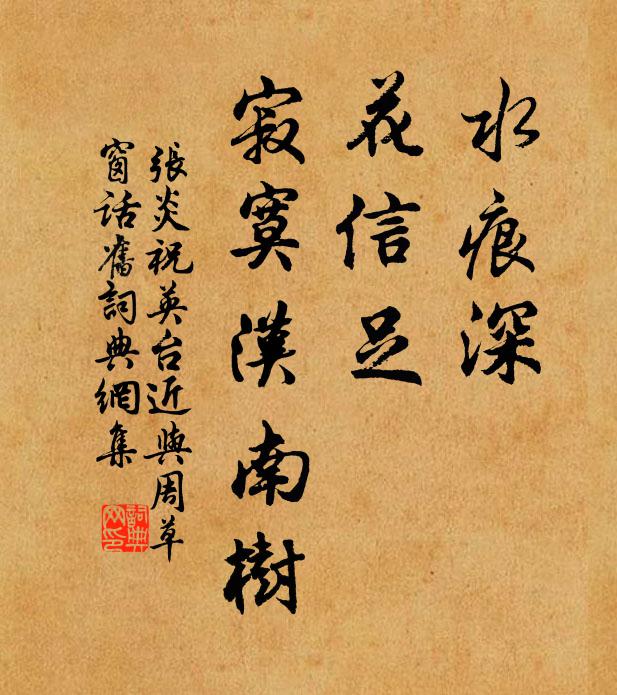 水痕深
花信足
寂寞漢南樹
張炎祝英台近與周草
窗話舊詞典網集
詞典
网印